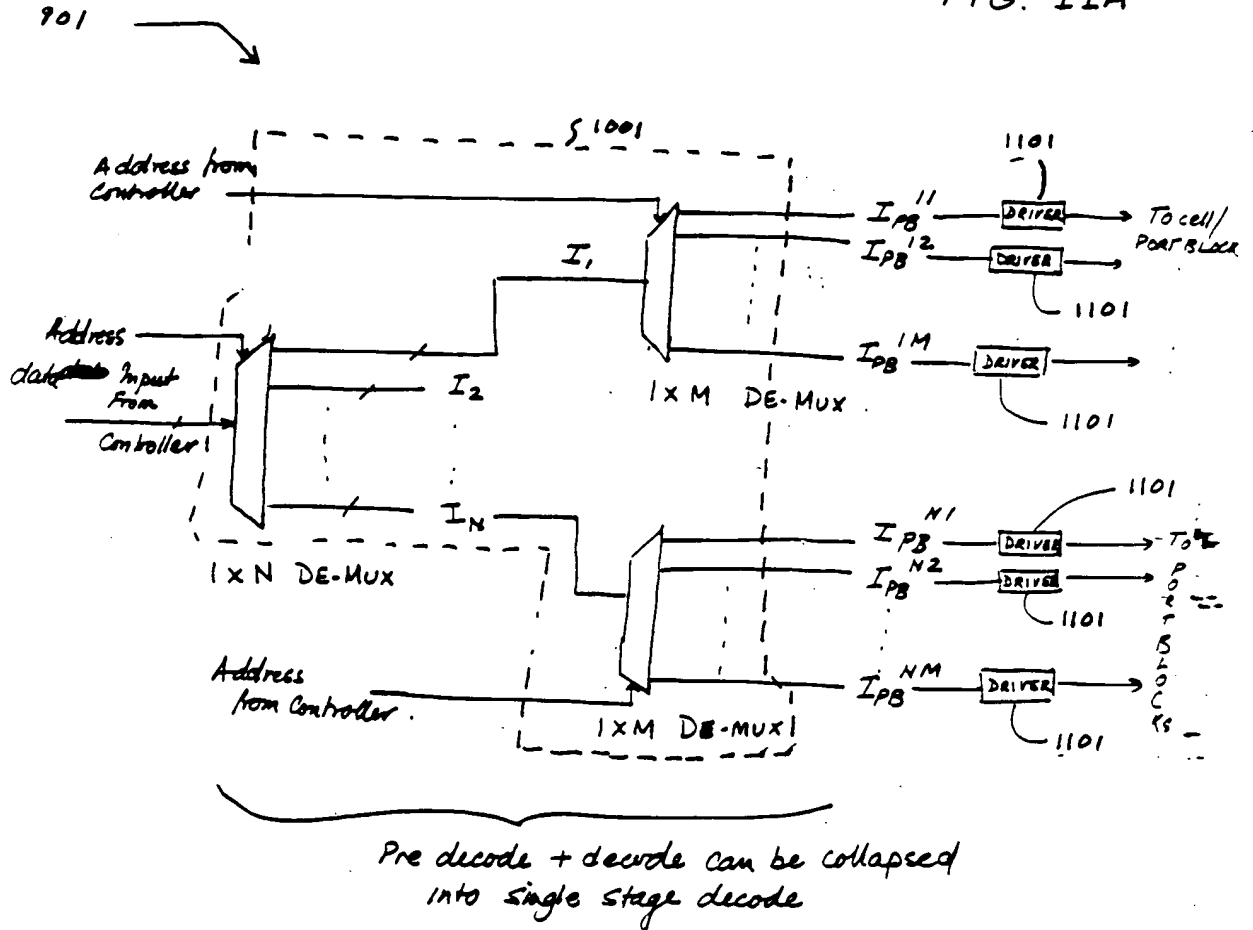 FIG. 11A
901
1001
1101
Address from
Controller
I_PB^11
DRIVER
To cell/
PORT BLOCK
I_PB^12
DRIVER
1101
I_1
Address
data Input
From
Controller
I_2
I_PB^1M
DRIVER
1101
1xM DE-MUX
I_N
1xN DE-MUX
1101
I_PB^N1
DRIVER
To
I_PB^N2
DRIVER
1101
PORT BLOCKS
Address
from Controller.
I_PB^NM
DRIVER
1101
1xM DE-MUX
Pre decode + decode can be collapsed
into single stage decode